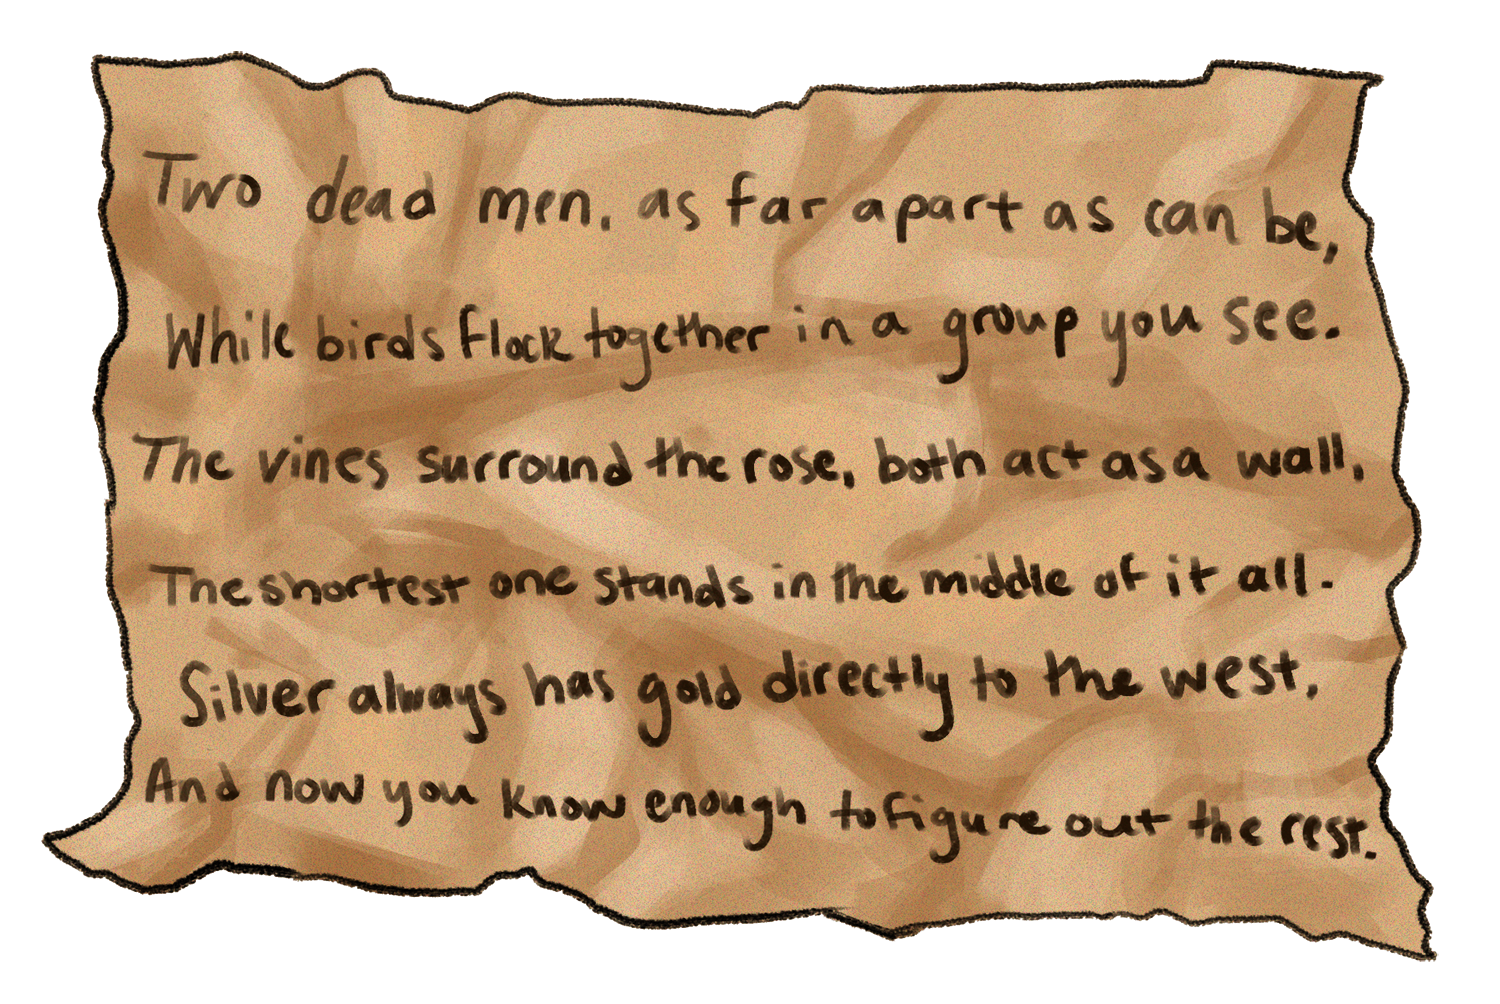 Two dead men. as far apart as can be,
While birds flock together in a group you see.
The vines surround the rose, both act as a wall,
The shortest one stands in the middle of it all.
Silver always has gold directly to the west,
And now you know enough to figure out the rest.